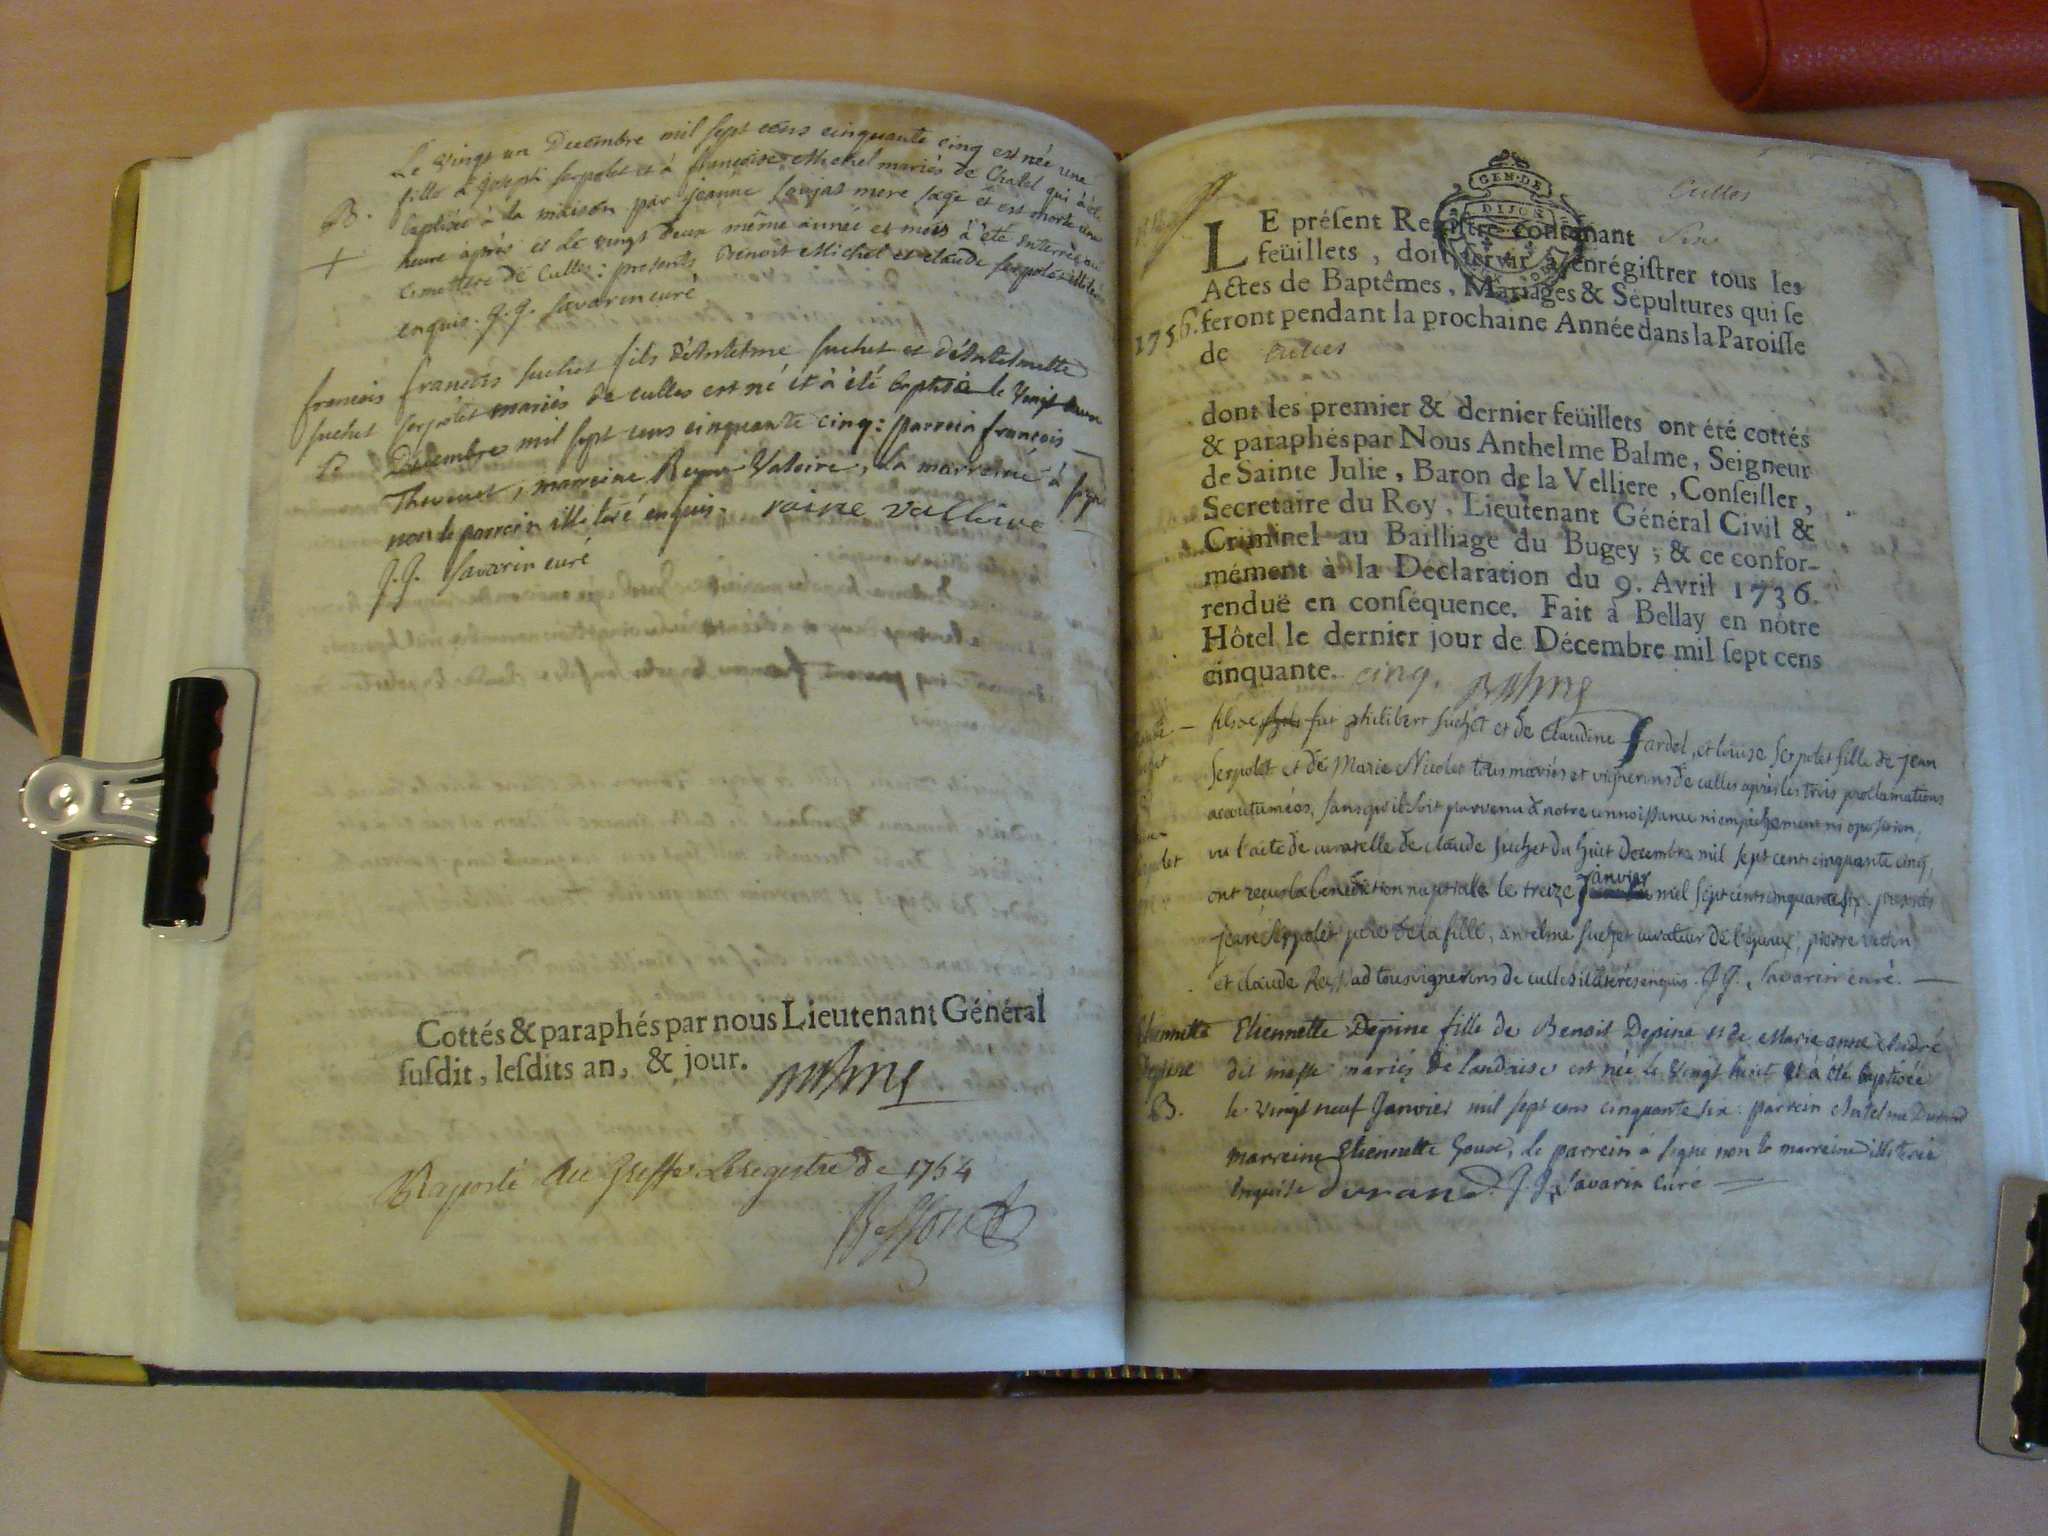 Le vingt un Decembre mil sept cens cinquante cinq est née une
fille à Joseph Serpolet et à françoise Michel mariés de Chatel qui à été
B. baptisée à la maison par jeanne mere sage et est morte une
+ heure après et le vingt deux même année et mois à été enterrée au
cimettere de Culles: presents Benoit Michel et claude Serpolet
enquis. J.J. Savarin curé
francois francois suchet fils d'Antelme suchet et d'Antelmette
suchet serpolet mariés de culles est né et à été baptisé le vingt
B Decembre mil sept cens cinquante cinq: parrein francois
Thevenet, marreine Reyne Valoire, la marreine à signé
non le parrein illiteré enquis. raine
J.J. Savarin curé
Cottés & paraphés par nous Lieutenant Général
susdit, lesdits an, & jour.
Raporté Au Greffe Le registre de 1754
Culles
LE présent Registre contenant six
GEN·DE
DIJON
feüillets, doit servir à enrégistrer tous les
Actes de Baptêmes, Mariages & Sépultures qui se
1756. feront pendant la prochaine Année dans la Paroisse
de Culles
dont les premier & dernier feüillets ont été cottés
& paraphés par Nous Anthelme Balme, Seigneur
de Sainte Julie, Baron de la Velliere, Conseiller,
Secretaire du Roy, Lieutenant Général Civil &
Criminel au Bailliage du Bugey; & ce confor-
mément à la Déclaration du 9. Avril 1736.
renduë en conséquence. Fait à Bellay en nôtre
Hôtel le dernier jour de Décembre mil sept cens
cinquante. cinq.
feu philibert suchet et de claudine fardel, et louise serpolet fille de jean
serpolet et de Marie Nicolet tous mariés et vignerons de culles après les trois proclamations
accoutumées, sans qu'il soit parvenu à notre connoissance ni empêchement ni oposition,
vu l'acte de curatelle de claude suchet du huit decembre mil sept cent cinquante cinq,
ont reçus la benediction nuptialle le treize janvier mil sept cent cinquante six. presents
jean serpolet pere de la fille, antelme suchet curateur de l'epoux, pierre
et claude tous vignerons de culles illiterés enquis. J.J. Savarin curé.
Etiennette Etiennette Depine fille de Benoit Depine et de Marie anne André
Depine dit mariés de landaise est née le vingt huit et à été baptisée
B. le vingt neuf Janvier mil sept cens cinquante six: parrein Antelme Durand
marreine Etiennette Goux, le parrein à signé non la marreine illiterée
enquise Durand. J.J. Savarin curé